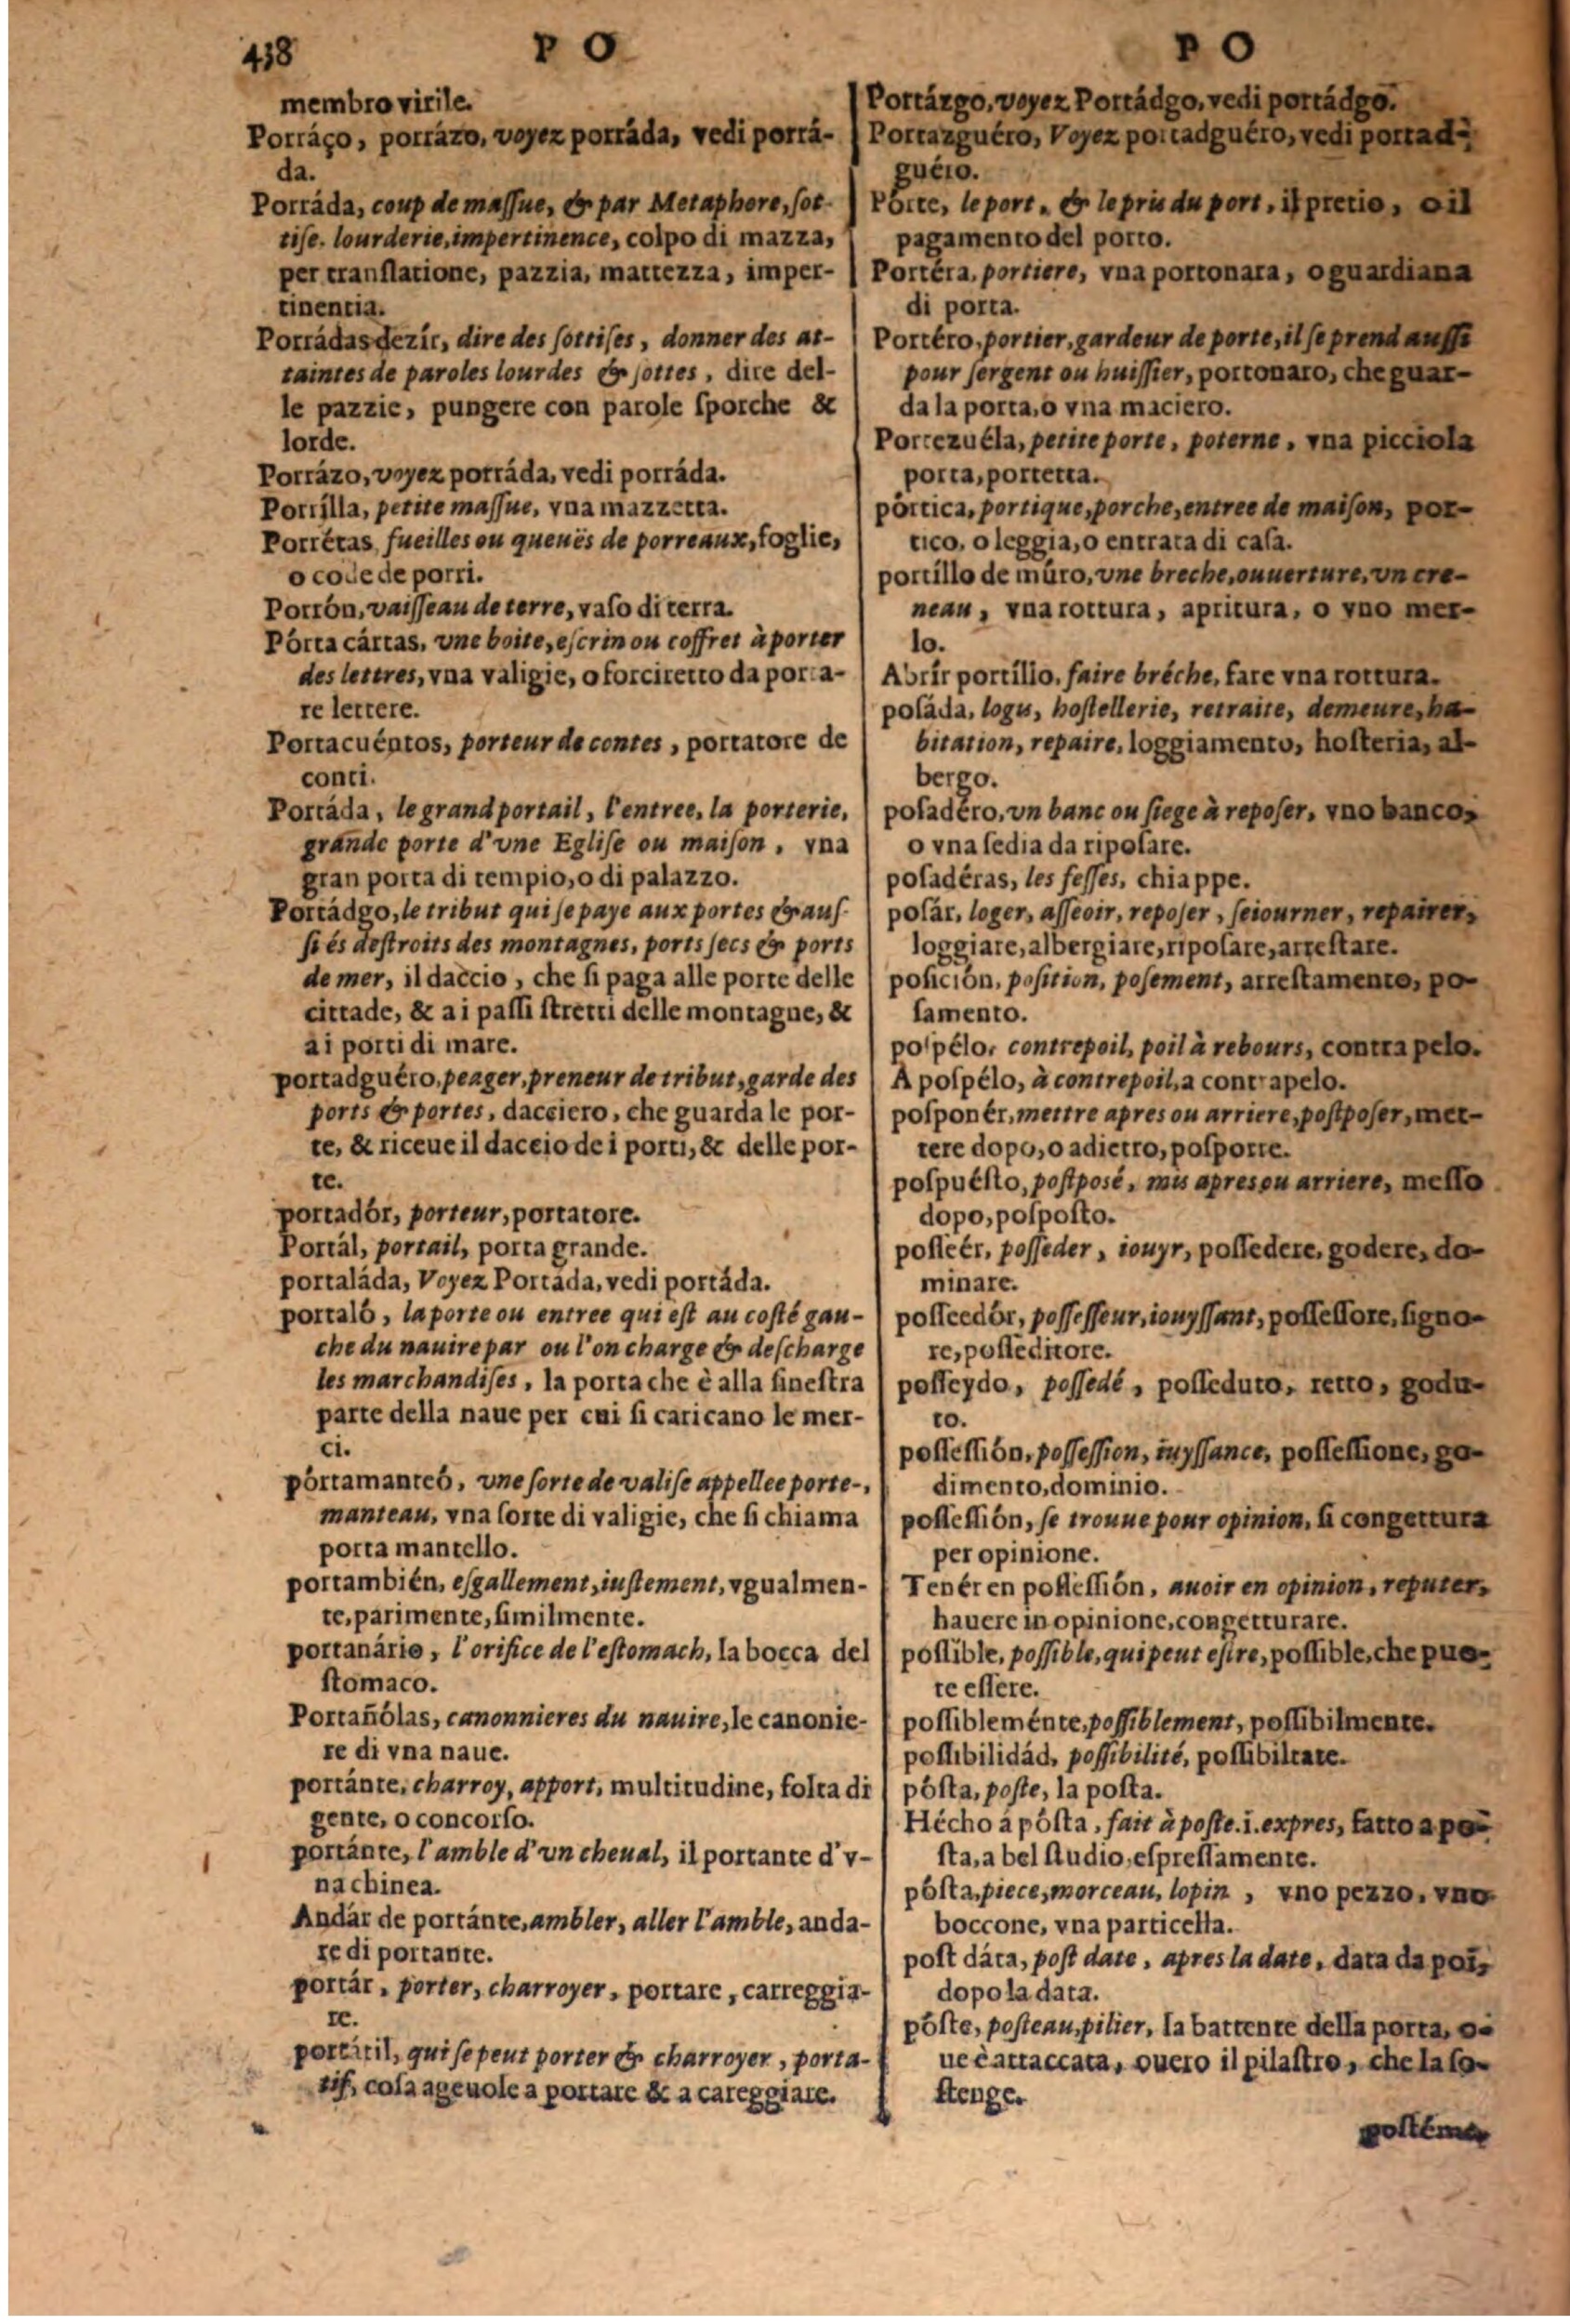 438 P O P O
membro virile.
Porráço, porrázo, voyez porráda, vedi porrá-
da.
Porráda, coup de maſſue, & par Metaphore, ſot-
tiſe. lourderie, impertinence, colpo di mazza,
per tranſlatione, pazzia, mattezza, imper-
tinentia.
Porrádas dezír, dire des ſottiſes, donner des at-
taintes de paroles lourdes & ſottes, dire del-
le pazzie, pungere con parole ſporche &
lorde.
Porrázo, voyez porráda, vedi porráda.
Porrílla, petite maſſue, vna mazzetta.
Porrétas, fueilles ou queuës de porreaux, foglie,
o code de porri.
Porrón, vaiſſeau de terre, vaſo di terra.
Pórta cártas, vne boite, eſcrin ou coffret à porter
des lettres, vna valigie, o forciretto da porta-
re lettere.
Portacuéntos, porteur de contes, portatore de
conti.
Portáda, le grand portail, l'entree, la porterie,
grande porte d'vne Egliſe ou maiſon, vna
gran porta di tempio, o di palazzo.
Portádgo, le tribut qui ſe paye aux portes & auſ-
ſi és deſtroits des montagnes, ports ſecs & ports
de mer, il daccio, che ſi paga alle porte delle
cittade, & a i paſſi ſtretti delle montagne, &
a i porti di mare.
portadguéro, peager, preneur de tribut, garde des
ports & portes, dacciero, che guarda le por-
te, & riceue il daccio de i porti, & delle por-
te.
portadór, porteur, portatore.
Portál, portail, porta grande.
portaláda, Voyez Portáda, vedi portáda.
portaló, la porte ou entree qui eſt au coſté gau-
che du nauire par ou l'on charge & deſcharge
les marchandiſes, la porta che è alla ſineſtra
parte della naue per cui ſi caricano le mer-
ci.
pórtamanteó, vne ſorte de valiſe appellee porte-
manteau, vna ſorte di valigie, che ſi chiama
porta mantello.
portambién, eſgallement, iuſtement, vgualmen-
te, parimente, ſimilmente.
portanário, l'orifice de l'eſtomach, la bocca del
ſtomaco.
Portañólas, canonnieres du nauire, le canonie-
re di vna naue.
portánte, charroy, apport, multitudine, folta di
gente, o concorſo.
portánte, l'amble d'vn cheual, il portante d'v-
na chinea.
Andár de portánte, ambler, aller l'amble, anda-
re di portante.
portár, porter, charroyer, portare, carreggia-
re.
portátil, qui ſe peut porter & charroyer, porta-
tif, coſa ageuole a portare & a careggiare.
Portázgo, voyez Portádgo, vedi portádgo.
Portazguéro, Voyez portadguéro, vedi portad-
guéro.
Pórte, le port, & le pris du port, il pretio, o il
pagamento del porto.
Portéra, portiere, vna portonara, o guardiana
di porta.
Portéro, portier, gardeur de porte, il ſe prend auſſi
pour ſergent ou huiſſier, portonaro, che guar-
da la porta, o vna maciero.
Portezuéla, petite porte, poterne, vna picciola
porta, portetta.
pórtica, portique, porche, entree de maiſon, por-
tico, o leggia, o entrata di caſa.
portíllo de múro, vne breche, ouuerture, vn cre-
neau, vna rottura, apritura, o vno mer-
lo.
Abrír portíllo, faire bréche, fare vna rottura.
poſáda, logis, hoſtellerie, retraite, demeure, ha-
bitation, repaire, loggiamento, hoſteria, al-
bergo.
poſadéro, vn banc ou ſiege à repoſer, vno banco,
o vna ſedia da ripoſare.
poſadéras, les feſſes, chiappe.
poſár, loger, aſſeoir, repoſer, ſeiourner, repairer,
loggiare, albergiare, ripoſare, arreſtare.
poſición, poſition, poſement, arreſtamento, po-
ſamento.
poſpélo, contrepoil, poil à rebours, contra pelo.
A poſpélo, à contrepoil, a contrapelo.
poſponér, mettre apres ou arriere, poſtpoſer, met-
tere dopo, o adietro, poſporre.
poſpuéſto, poſtposé, mis apres ou arriere, meſſo
dopo, poſpoſto.
poſſeér, poſſeder, iouyr, poſſedere, godere, do-
minare.
poſſeedór, poſſeſſeur, iouyſſant, poſſeſſore, ſigno-
re, poſſeditore.
poſſeydo, poſſedé, poſſeduto, retto, godu-
to.
poſſeſſión, poſſeſſion, iuyſſance, poſſeſſione, go-
dimento, dominio.
poſſeſſión, ſe trouue pour opinion, ſi congettura
per opinione.
Tenér en poſſeſſión, auoir en opinion, reputer,
hauere in opinione, congetturare.
poſſible, poſſible, qui peut eſtre, poſſible, che puo-
te eſſere.
poſſibleménte, poſſiblement, poſſibilmente.
poſſibilidád, poſſibilité, poſſibiltate.
póſta, poſte, la poſta.
Hécho á póſta, fait à poſte. i. expres, fatto a po-
ſta, a bel ſtudio, eſpreſſamente.
póſta, piece, morceau, lopin, vno pezzo, vno
boccone, vna particella.
poſt dáta, poſt date, apres la date, data da poi,
dopo la data.
póſte, poſteau, pilier, la battente della porta, o-
ue è attaccata, ouero il pilaſtro, che la ſo-
ſtenge.
poſtéma,